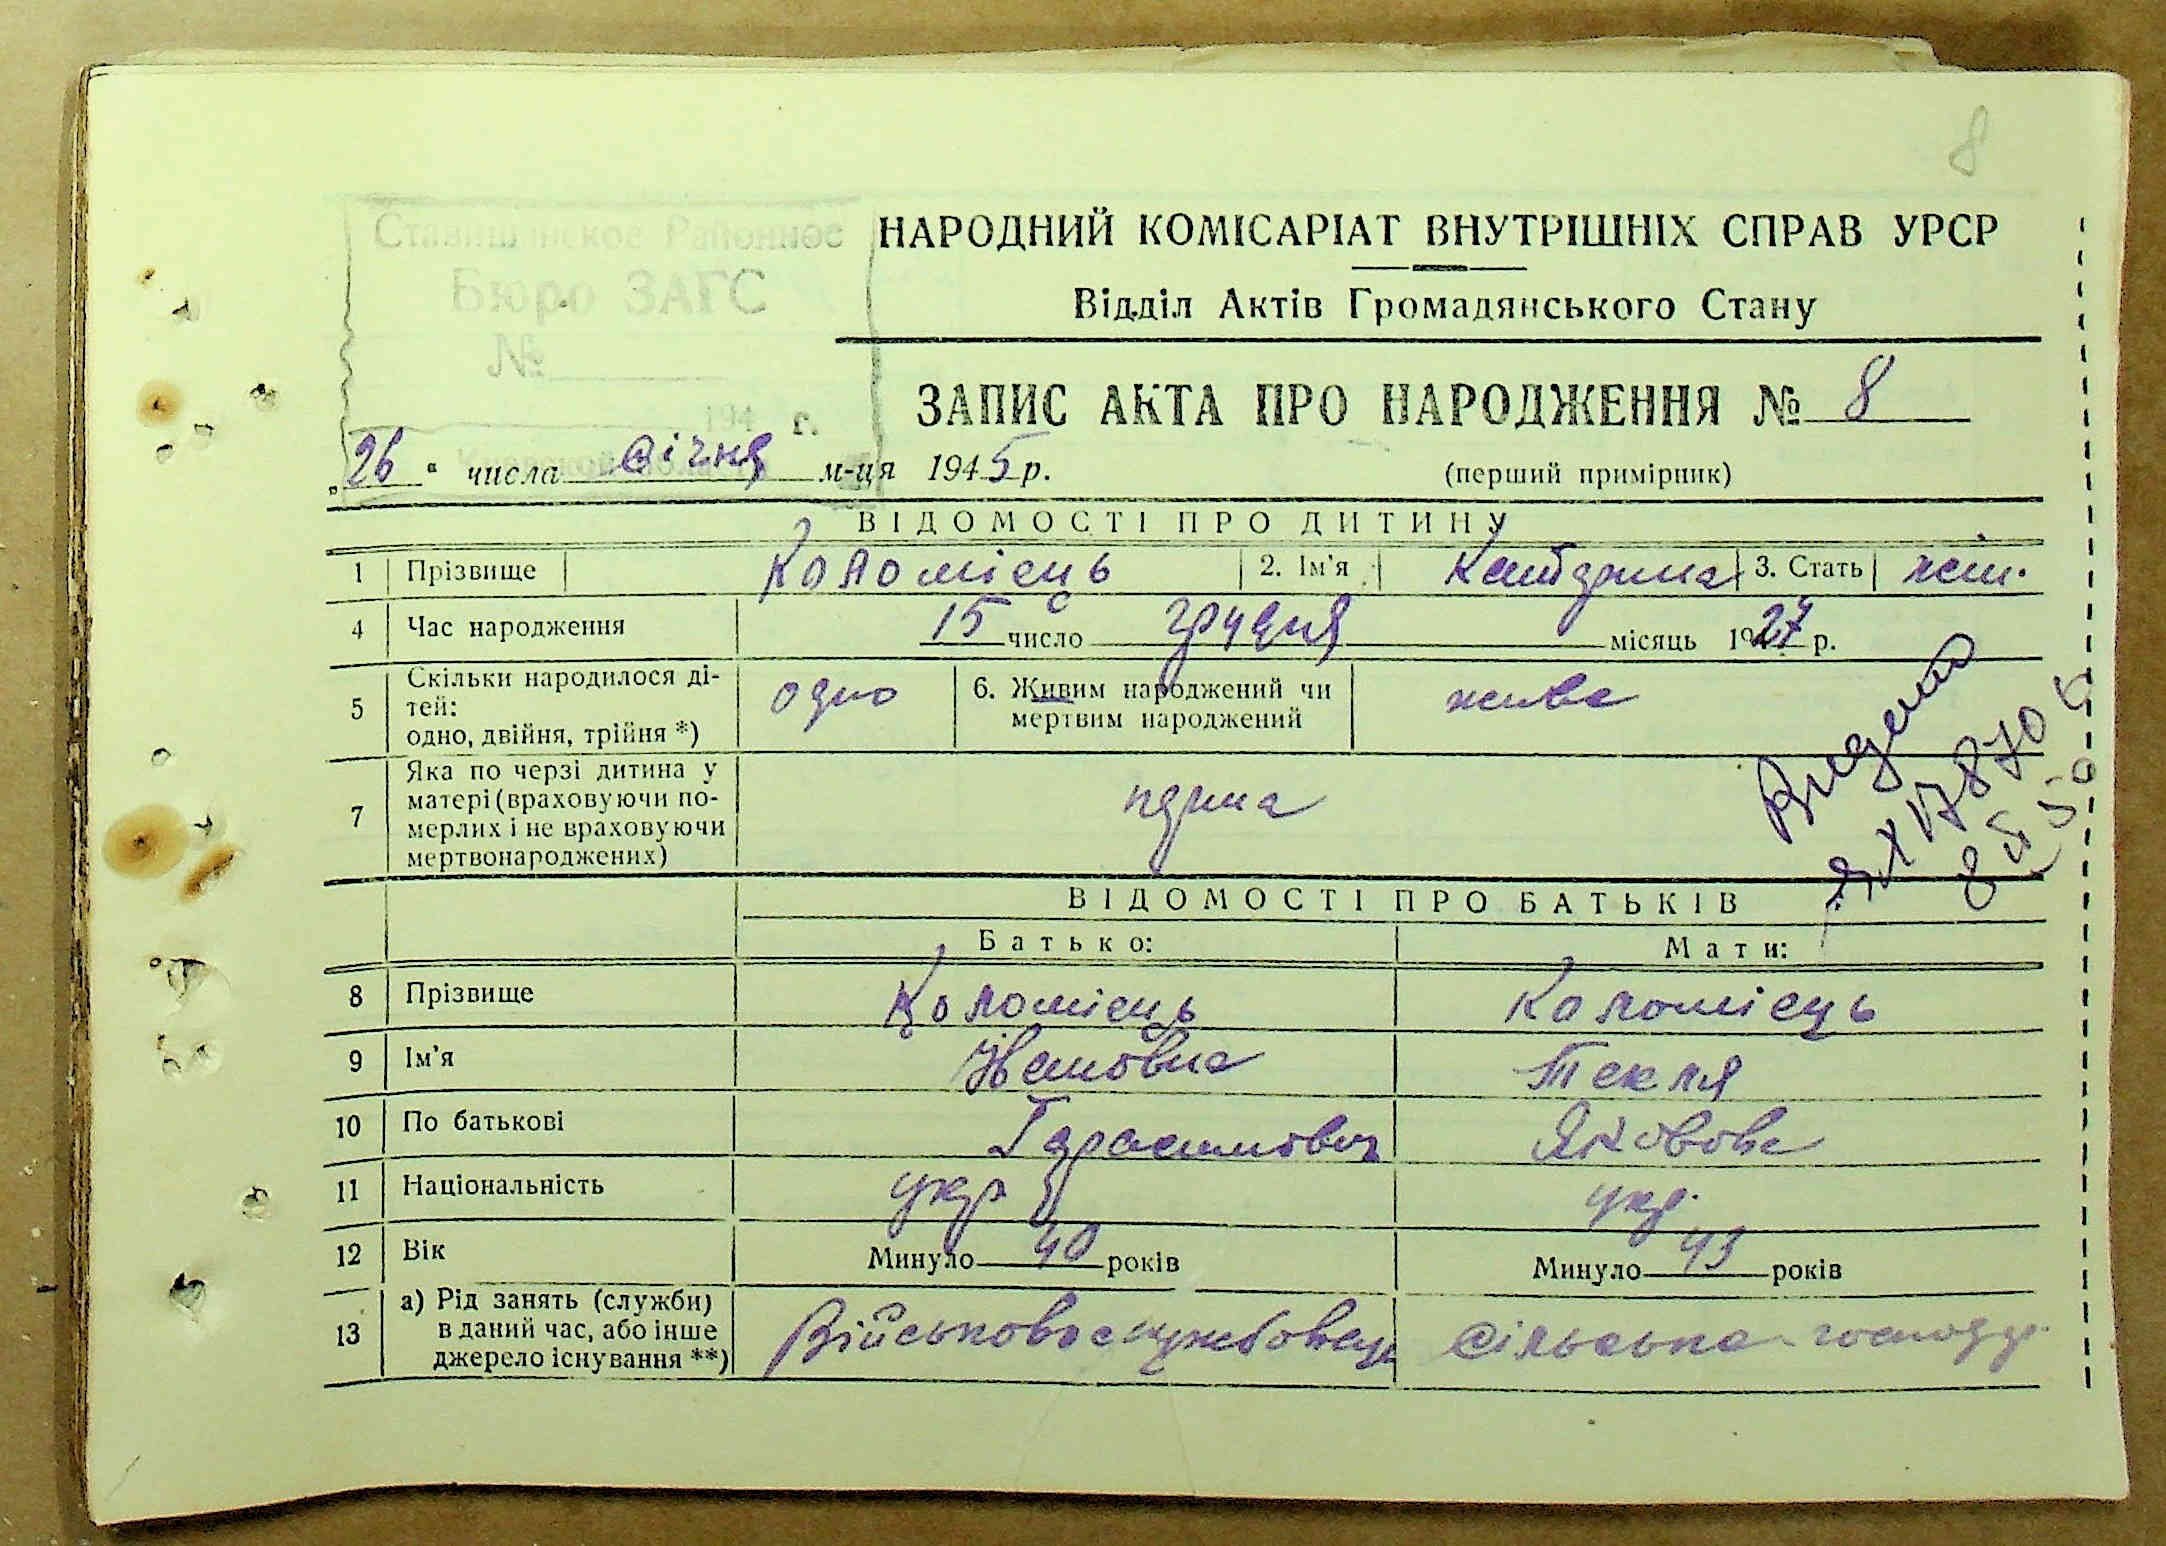 8
Ставищанское Районное
Бюро ЗАГС
№
194 г.
НАРОДНИЙ КОМІСАРІАТ ВНУТРІШНІХ СПРАВ УРСР
Відділ Актів Громадянського Стану
ЗАПИС АКТА ПРО НАРОДЖЕННЯ № 8
„26" числа січня м-ця 1945 р.
(перший примірник)
ВІДОМОСТІ ПРО ДИТИНУ
1 Прізвище Коломієць 2. Ім'я 3. Стать жін.
4 Час народження 15 число грудня місяць 1927 р.
5 Скільки народилося дітей: одно, двійня, трійня *) одно 6. Живим народжений чи мертвим народжений жива
7 Яка по черзі дитина у матері (враховуючи померлих і не враховуючи мертвонароджених)
ВІДОМОСТІ ПРО БАТЬКІВ
Батько: Мати:
8 Прізвище Коломієць Коломієць
9 Ім'я Текля
10 По батькові Гарасимович Якововна
11 Національність укр укр.
12 Вік Минуло 40 років Минуло 43 років
13 а) Рід занять (служби) в даний час, або інше джерело існування **) Військовослужбовець сільське господар.